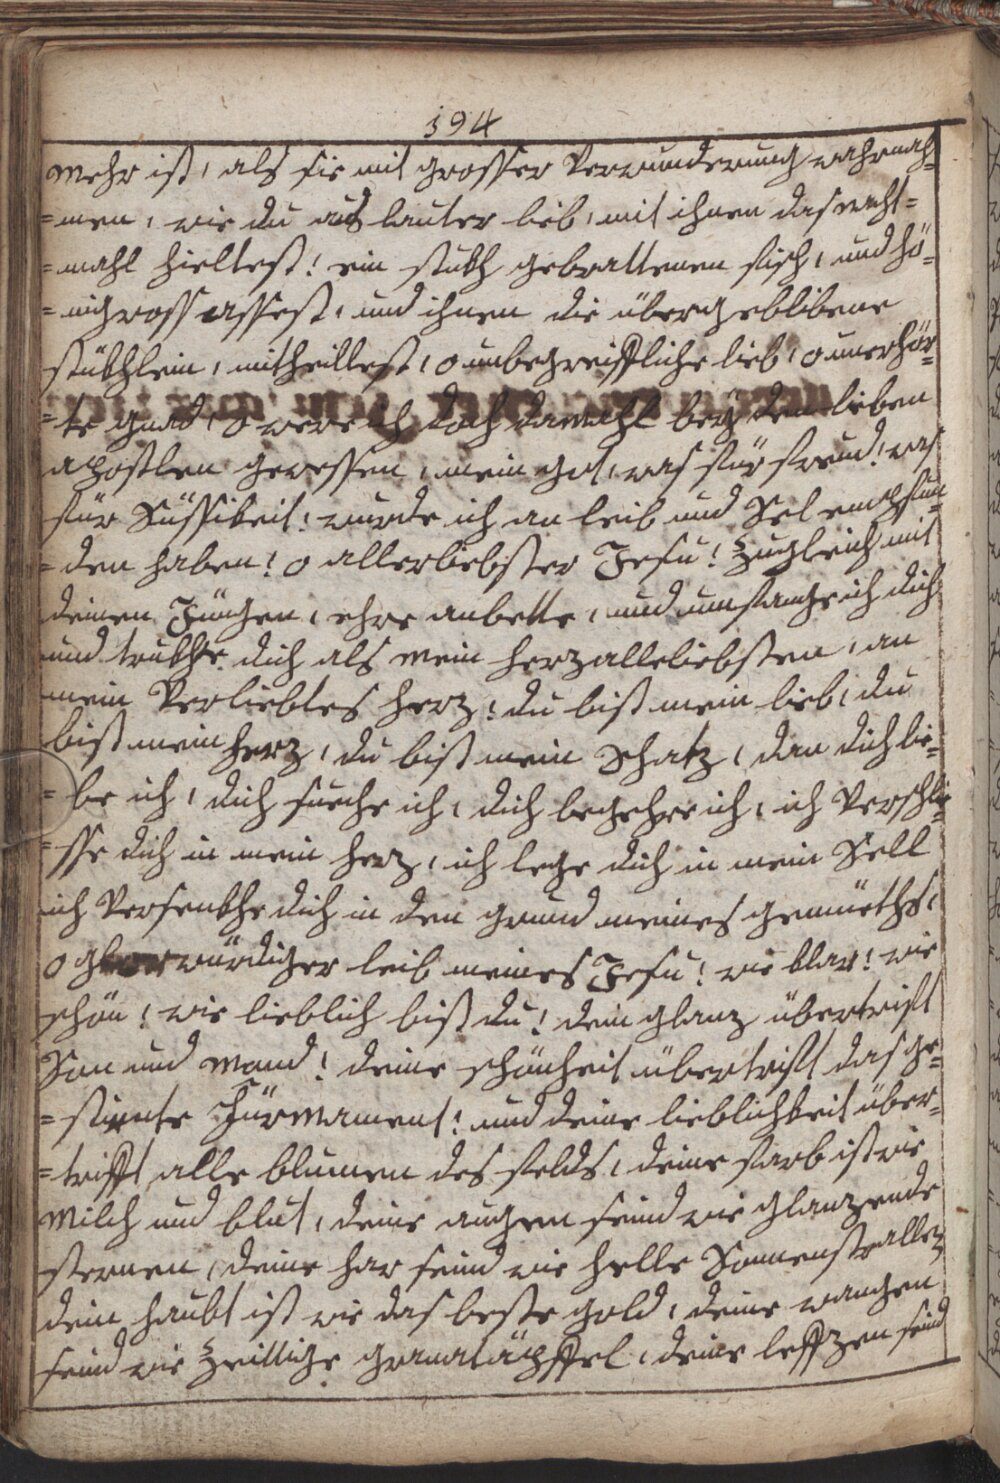 194
mehr ist, als sie mit grosser Verwunderung wahrnah=
=men, wie du aus lauter lieb, mit ihnen das nacht=
=mahl hieltest! ein stukh gebrattenen fisch, und hö=
=nigross assest, und ihnen die übergeblibene
stükhlein, mitheiltest, o unbegreiffliche lieb, o unerhör=
=te gnad! o were ich doch damahl bey den lieben
apostlen gewessen, mein got, was für freud! was
für Süssikeit! wurde ich an leib und Sel empfun=
=den haben! o allerliebster Jesu! zugleich mit
deinen Jüngen, ehre anbette, und umfange ich dich
und trukhe dich als mein herzalleliebsten, an
mein Verliebtes herz! du bist mein lieb, du
bist mein herz, du bist mein schatz, dan dich lie=
=be ich, dich sueche ich, dich begehre ich, ich Verschlie=
=sse dich in mein herz, ich lege dich in mein Sell
ich Versenkhe dich in den grund meines gemüeths,
o glorwürdiger leib meines Jesu! wie klar! wie
schön! wie lieblich bist du! dein glanz übertrift
Son und mond! deine schönheit übertrift das ge=
=stirnte Fürmament! und deine lieblichkeit über=
=trifft alle blumen des felds, deine farb ist wie
milch und blut, deine augen seind wie glanzende
sternen, deine har seind wie helle Sonnenstrallen,
dein haubt ist wie das beste gold, deine wangen
seind wie zeittige granatäpffel, deine leffzen seind